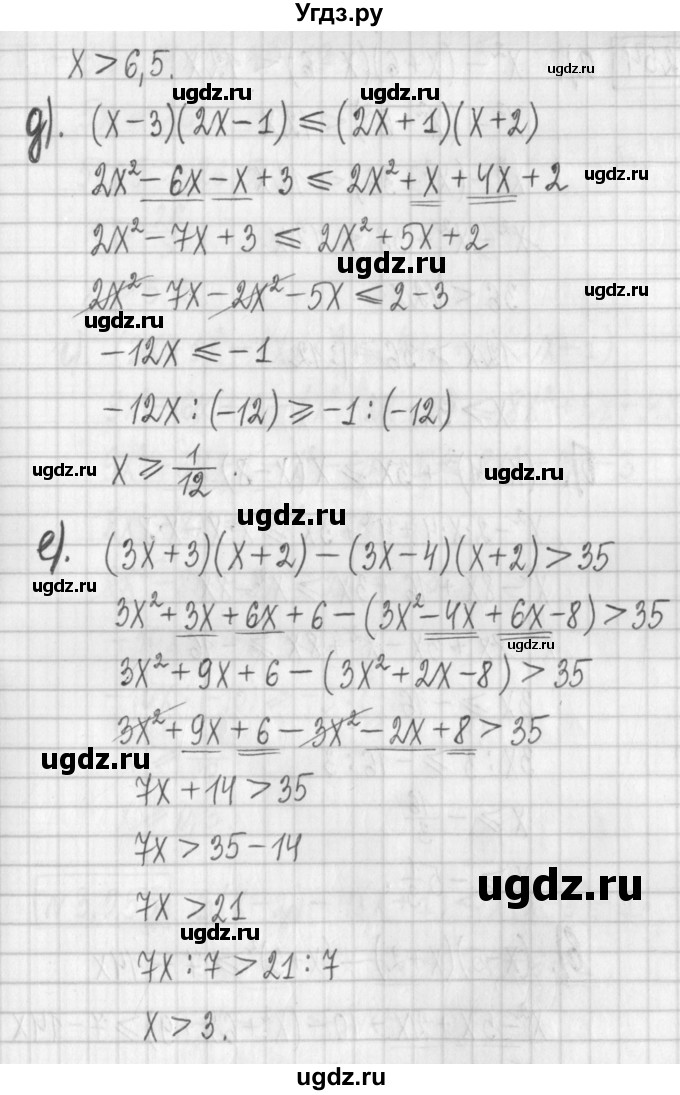 Угдз.ру
x > 6,5.
ugdz.ru
ugdz.ru ugdz.ru
д). (x-3)(2x-1) ⩽ (2x+1)(x+2)
2x² - 6x - x + 3 ⩽ 2x² + x + 4x + 2
ugdz.ru
2x² - 7x + 3 ⩽ 2x² + 5x + 2
ugdz.ru
2x² - 7x - 2x² - 5x ⩽ 2 - 3
ugdz.ru
ugdz.ru
-12x ⩽ -1
-12x : (-12) ⩾ -1 : (-12)
ugdz.ru x ⩾ 1/12. ugdz.ru
ugdz.ru
е). (3x+3)(x+2) - (3x-4)(x+2) > 35
ugdz.ru
3x² + 3x + 6x + 6 - (3x² - 4x + 6x - 8) > 35
ugdz.ru
3x² + 9x + 6 - (3x² + 2x - 8) > 35
3x² + 9x + 6 - 3x² - 2x + 8 > 35
ugdz.ru
7x + 14 > 35
7x > 35 - 14
ugdz.ru
7x > 21
ugdz.ru
7x : 7 > 21 : 7
x > 3.
ugdz.ru